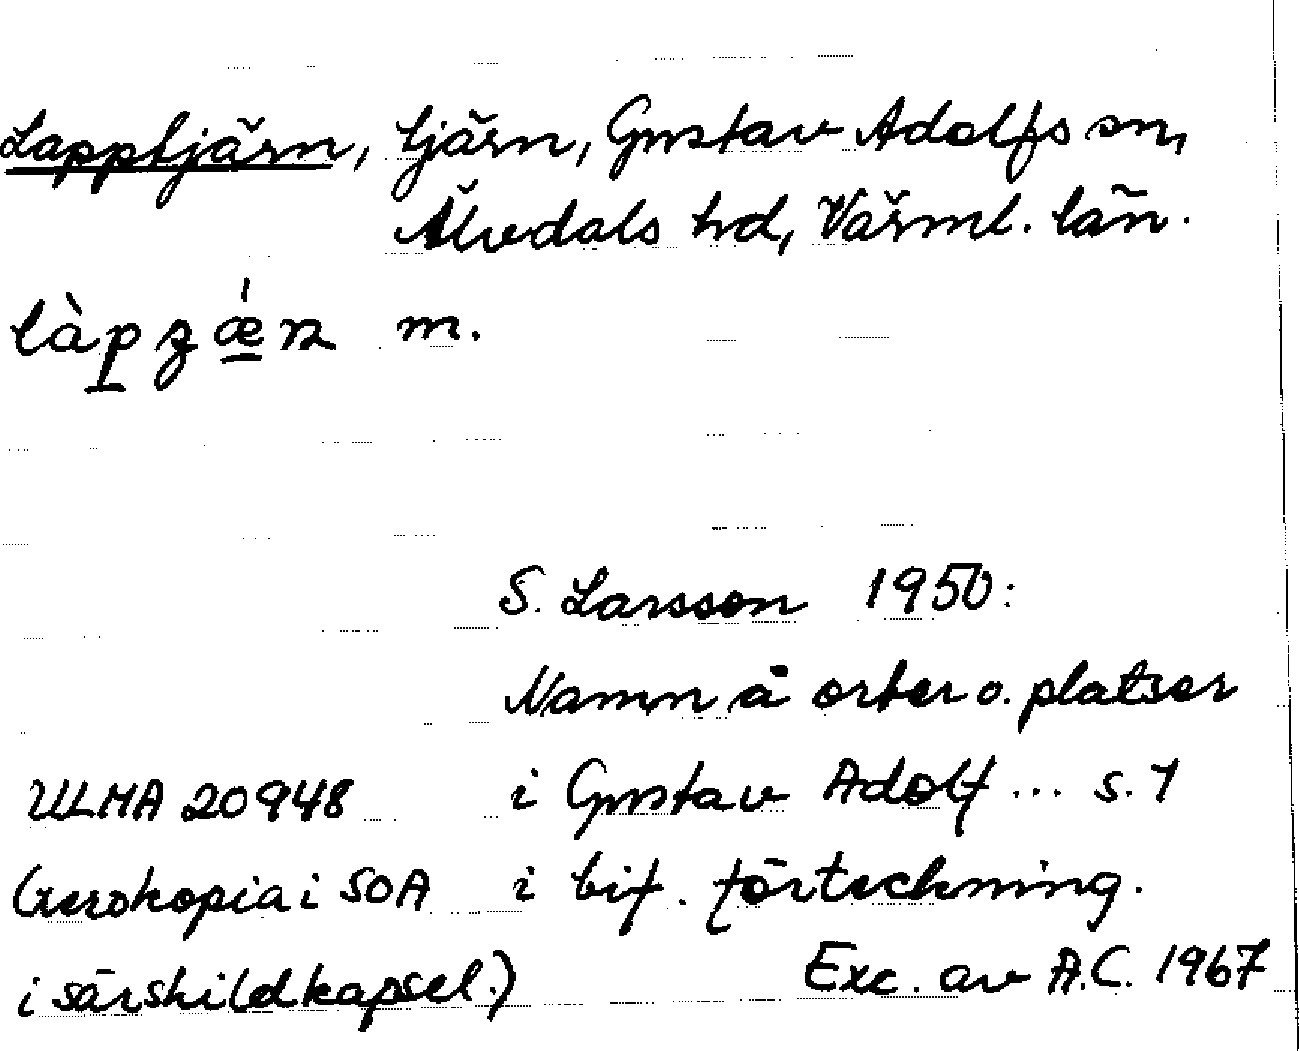 Lapptjärn, tjärn, Gustav Adolfs sn,
Älvdals hd, Värml. län.
làpʒǽn m.
S. Larsson 1950:
Namn å orter o. platser
i Gustav Adolf ... s. 1
i bif. förteckning.
ULMA 20948
(xerokopia i SOA
i särskild kapsel.)
Exc. av A.C. 1967